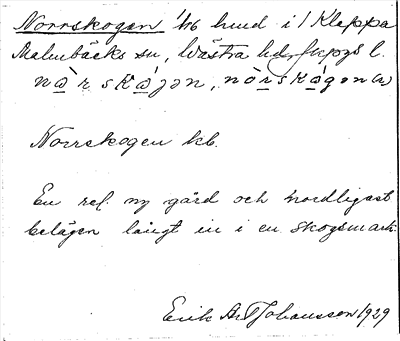 Norrskogen 1/16 hmd i 1 Kleppa
Malmbäcks sn, Västra hd, Jkpgs l.
Norrskogen kb.
En rel. ny gård och nordligast
belägen långt in i en skogsmark.
Erik Art Johansson 1929